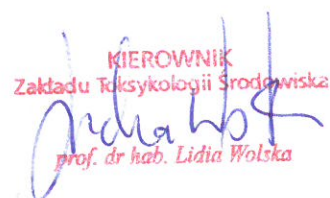 KIEROWNIK
Zakładu Toksykologii Środowiska
prof. dr hab. Lidia Wolska